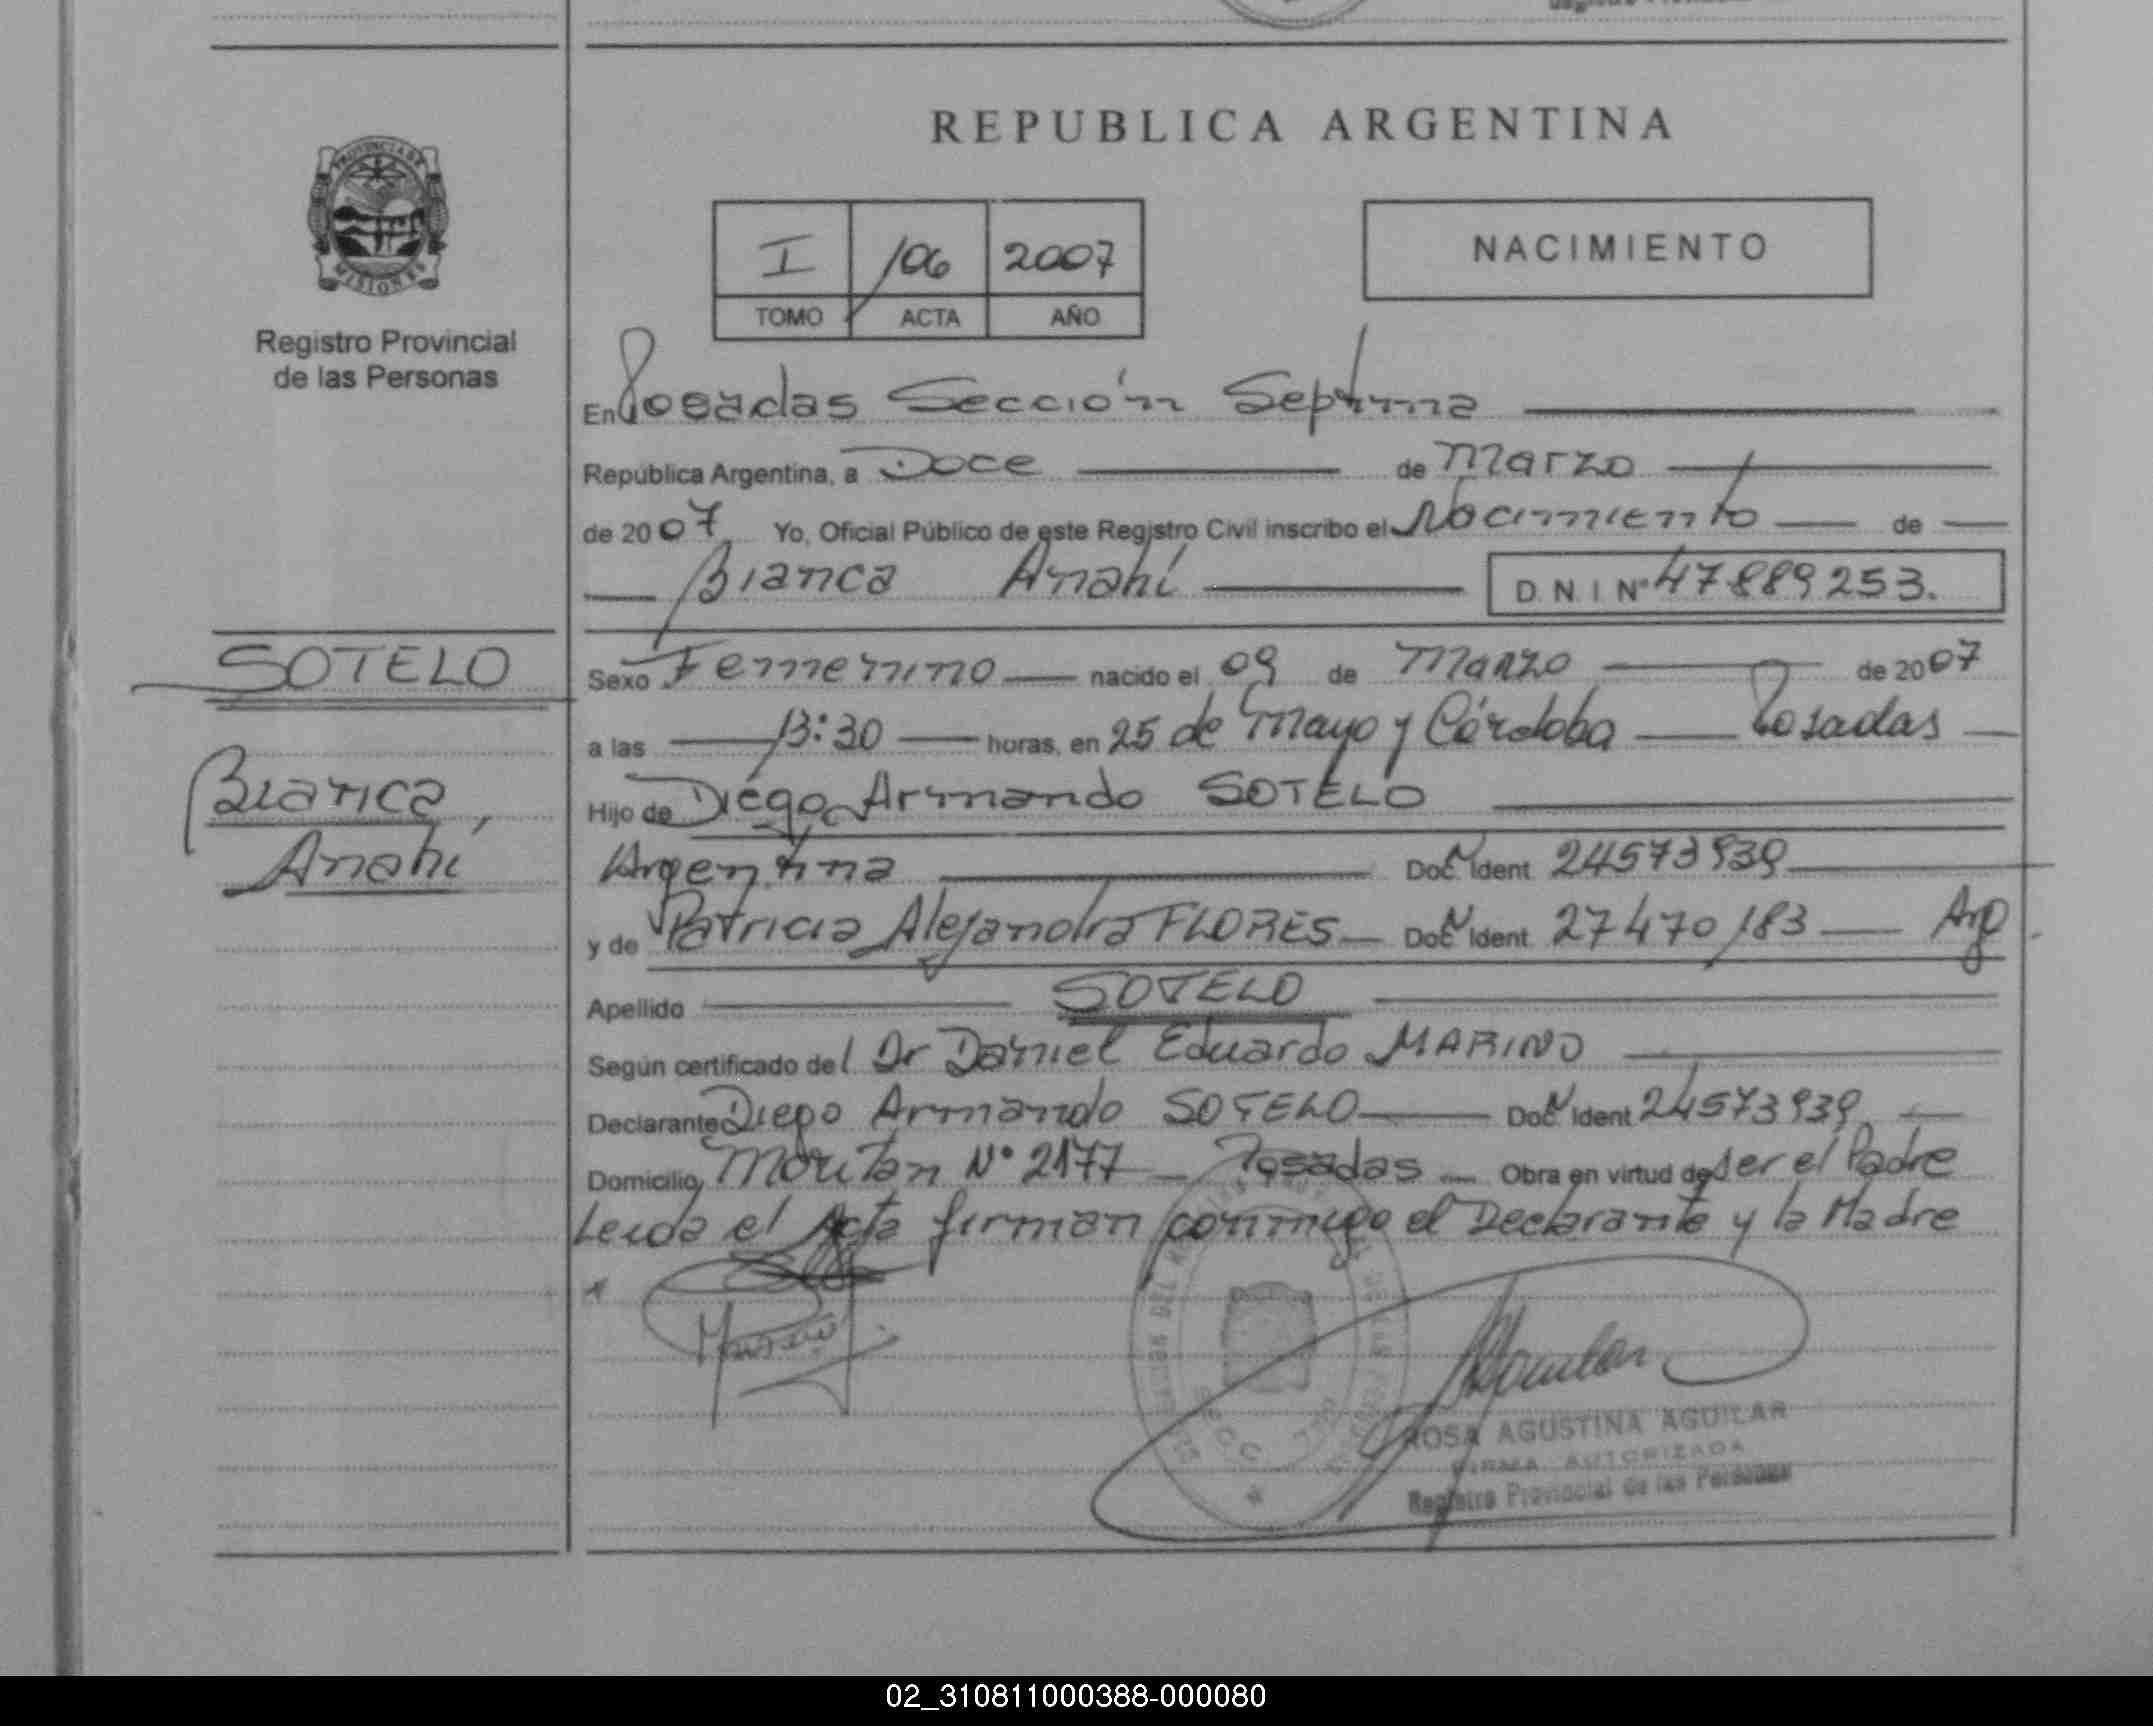 REPUBLICA ARGENTINA
PROVINCIA DE
MISIONES
Registro Provincial
de las Personas
I 106 2007
TOMO ACTA AÑO
NACIMIENTO
En Posadas Sección Septima
República Argentina, a Doce de Marzo
de 2007 Yo, Oficial Público de este Registro Civil inscribo el Nacimiento de
Bianca Anahí D.N.I Nº 47889253.
SOTELO
Bianca,
Anahí
Sexo Femenino nacido el 09 de Marzo de 2007
a las 13:30 horas, en 25 de Mayo y Córdoba Posadas
Hijo de Diego Armando SOTELO
Argentina Doc Ident 24573939
y de Patricia Alejandra FLORES Doc Ident 27470183 Arg
Apellido SOTELO
Según certificado del Dr Daniel Eduardo MARINO
Declarante Diego Armando SOTELO Doc Ident 24573939
Domicilio Nº 2177 Posadas Obra en virtud de ser el Padre
Leida el Acta firman conmigo el Declarante y la Madre
SECC
ROSA AGUSTINA AGUILAR
FIRMA AUTORIZADA
Registro Provincial de las Personas
02_310811000388-000080